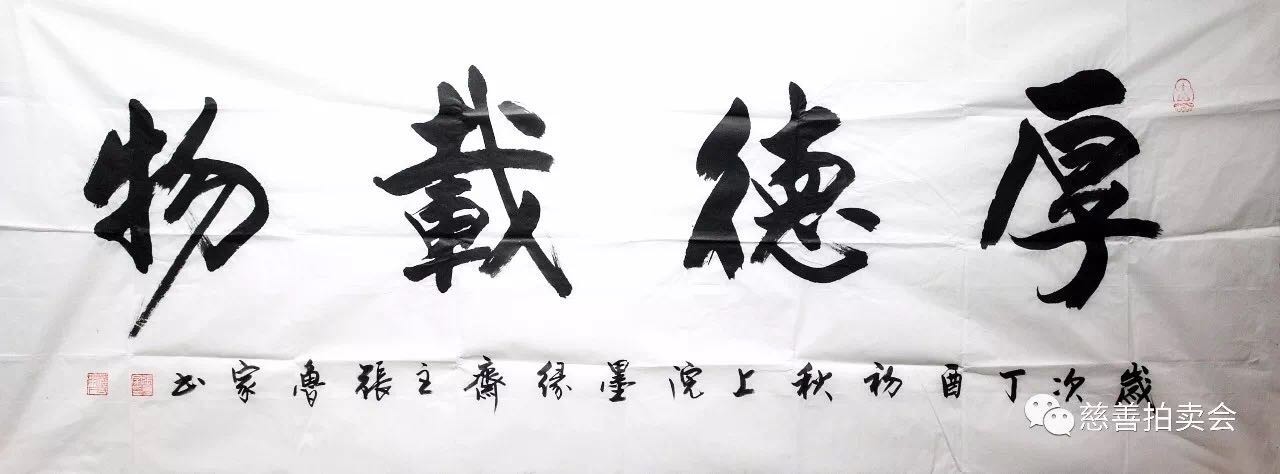 厚德載物
歲次丁酉初秋上浣墨緣齋主張魯家书
慈善拍卖会